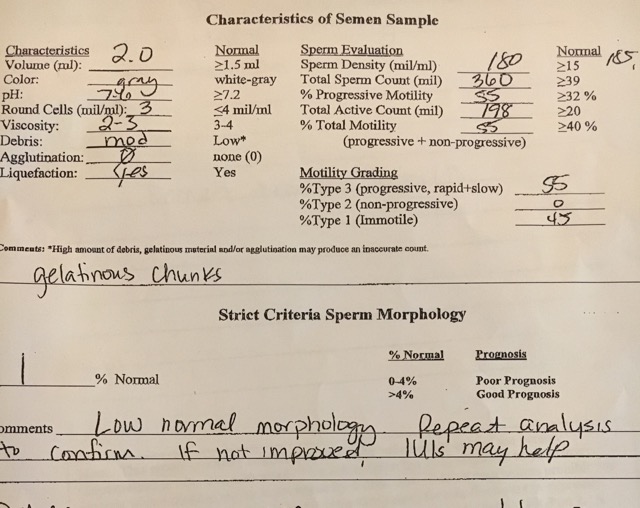 Characteristics of Semen Sample
Characteristics 2.0 Normal Sperm Evaluation Normal 185,
Volume (ml): ≥1.5 ml Sperm Density (mil/ml) 180 ≥15
Color: gray white-gray Total Sperm Count (mil) 360 ≥39
pH: ≥7.2 % Progressive Motility 55 ≥32 %
Round Cells (mil/ml): 3 ≤4 mil/ml Total Active Count (mil) 198 ≥20
Viscosity: 2-3 3-4 % Total Motility 55 ≥40 %
Debris: mod Low* (progressive + non-progressive)
Agglutination: 0 none (0)
Liquefaction: yes Yes Motility Grading
%Type 3 (progressive, rapid+slow) 55
%Type 2 (non-progressive) 0
%Type 1 (Immotile) 45
Comments: *High amount of debris, gelatinous material and/or agglutination may produce an inaccurate count.
gelatinous chunks
Strict Criteria Sperm Morphology
% Normal Prognosis
1 % Normal 0-4% Poor Prognosis
>4% Good Prognosis
omments Low normal morphology. Repeat analysis
to confirm. If not improved, IUIs may help